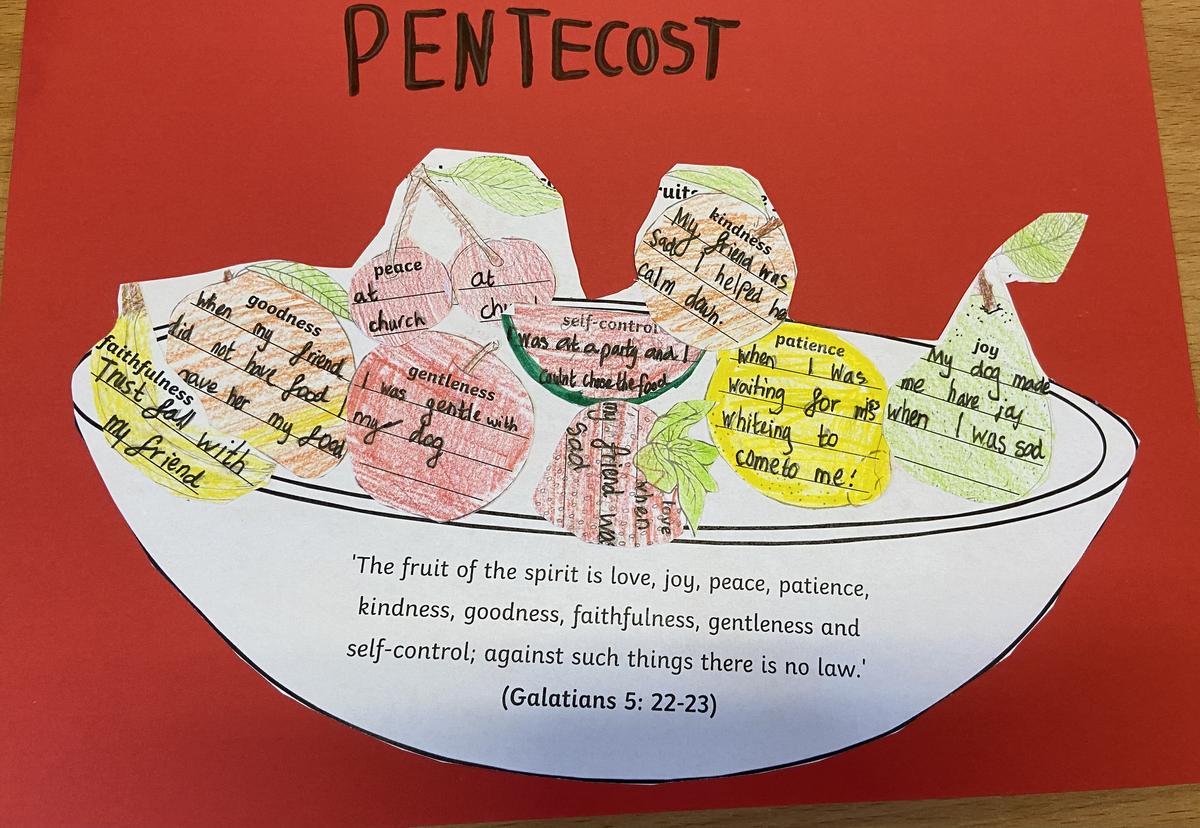 PENTECOST
peace
at
church
at
kindness
My friend was
sad I helped
calm down.
goodness
when my friend
did not have food I
gave her my food
faithfulness
Trust fall with
my friend
gentleness
I was gentle with
my dog
self-control
was at a party and I
the food
love
when
my friend
sad
patience
when I was
waiting for
whiteing to
come to me!
joy
My dog made
me have joy
when I was sad
'The fruit of the spirit is love, joy, peace, patience,
kindness, goodness, faithfulness, gentleness and
self-control; against such things there is no law.'
(Galatians 5: 22-23)